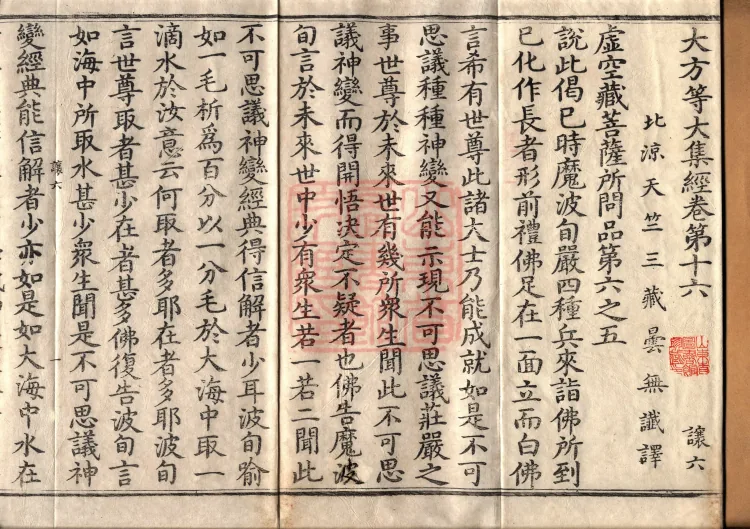 大方等大集經卷第十六 讓六
北涼天竺三藏曇無讖譯
虛空藏菩薩所問品第六之五
說此偈已時魔波旬嚴四種兵來詣佛所到
已化作長者形前禮佛足在一面立而白佛
言希有世尊此諸大士乃能成就如是不可
思議種種神變又能示現不可思議莊嚴之
事世尊於未來世有幾所衆生聞此不可思
議神變而得開悟決定不疑者也佛告魔波
旬言於未來世中少有衆生若一若二聞此
不可思議神變經典得信解者少耳波旬喻
如一毛析爲百分以一分毛於大海中取一
滴水於汝意云何取者多耶在者多耶波旬
言世尊取者甚少在者甚多佛復告波旬言
如海中所取水甚少衆生聞是不可思議神
讓六 一
變經典能信解者少亦如是如大海中水在